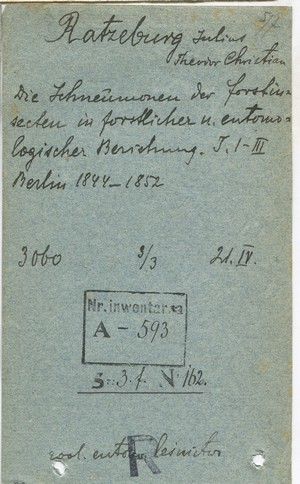 57
Ratzeburg Julius
Theodor Christian
Die Ichneumonen der forstin-
secten in forstlicher u. entomo-
logischer Beziehung. T. 1-III
Berlin 1844-1852
3060 3/3 21.IV.
Nr. inwentarza
A - 593
S: 3.f. N 162.
R
entom.